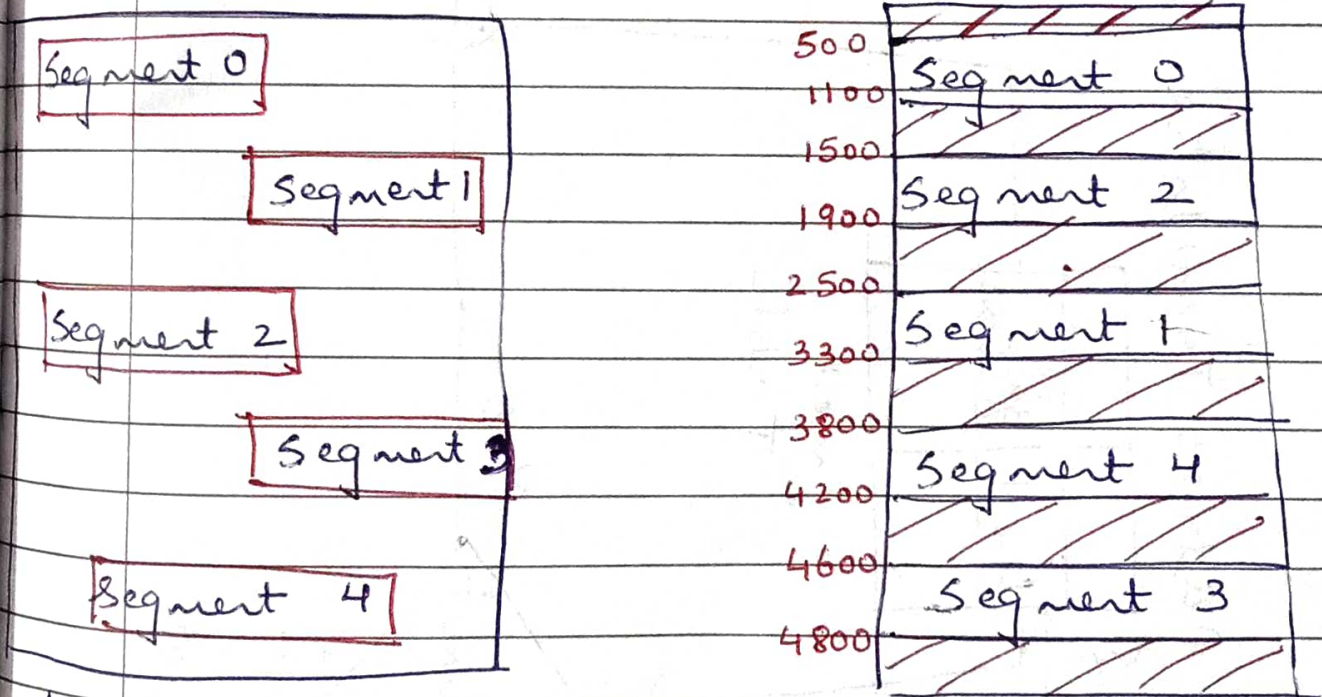 Segment 0
Segment 1
Segment 2
Segment 3
Segment 4
500
Segment 0
1100
1500
Segment 2
1900
2500
Segment 1
3300
3800
Segment 4
4200
4600
Segment 3
4800